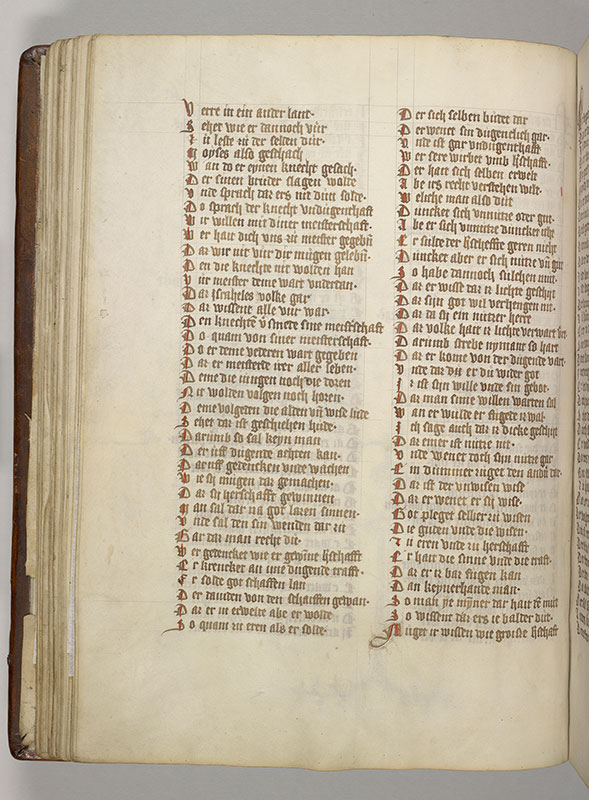 Verre in ein ander lant·
Sehet wie er dannoch vür
Zu leste zu der selden dür·
Moyses also geschach
Wan do er eynen knecht gesach·
Der sinen bruder slagen wolde
Vnde sprach daz ers nit dun solde·
Do sprach der knecht vndugenthaft
Wir willen nit diner meisterschaft·
Wer hait dich vns zu meister gegebn̄
Daz wir nit vür die mügen gelebn̄
Den die knechte nit wolden han
Vür meister deme wart vndertan·
Daz jsraheles volke gar
Daz wissent alle vür war·
Den knechtē v̄smete sine meist̄schaft
Do quam von siner meisterschaft·
Do er deme vederen wart gegeben
Daz er meisterde irer aller leben·
Deme die iungen noch die doren
Nit wolden volgen noch horen·
Deme volgeden die alden vn̄ wise lüde
Sehet daz ist geschiehen hüde·
Darumb so sal keyn man
Der uff dugende achten kan·
Daruff gedencken vnde wachen
Wie sij mügen daz gemachen·
Daz sij herschafft gewinnen
Man sal daz na got lazen sinnen·
Vnde sal den sin wenden dar zu
Gar daz man recht du·
Wer gedencket wie er gewīne h̄schafft
Er krencket an ime dugende crafft·
Er solde got schaffen lan
Der tauden von den schaiffen gewan·
Daz er in erwelte abe er wolde
So quam zu eren als er solde·
Der sich selben büdet dar
Der wenet sin dugenclich gar·
Vnde ist gar vndugenthafft
Wer sere wirbet vmb h̄schafft·
Der hait sich selben erwelt
Abe irs recht verstehen welt·
Weliche man also düt
Duncket sich vnnutze oder gut·
Abe er sich vnnutze duncket icht
Er sulde der h̄scheffte geren nicht
Duncket aber er sich nütze vn̄ gut
So habe dannoch sulchen mut·
Daz er wisse daz iz lichte geschijt
Daz sijn got wil verhengen nit·
Daz da sij ein nutzer herre
Daz volke hait iz lichte verwart ver
Darumb strebe nymant so hart
Daz er kome von der dugende vart·
Vnde daz dis er du wider got
Ez ist sijn wille vnde sin gebot·
Daz man sime willen warten sal
Wan er wulde er fugete iz wal·
Ich sage auch daz iz dicke geschijt
Daz einer ist nütze nit·
Vnde wenet doch sijn nütze gar
Ein dummer ruget den andn̄ dar·
Daz ist der vnwisen wise
Daz er wenet er sij wise·
Got pleget selber zu wisen
Die guden vnde die wisen·
Zu eren vnde zu herschafft
Er hait die sinne vnde die craft·
Daz er iz baz fugen kan
Dan keynerhande man·
So man ye mȳner dar hait tē mut
So wissent daz ers ie balder düt·
Muget ir wissen wie groisse h̄schaft